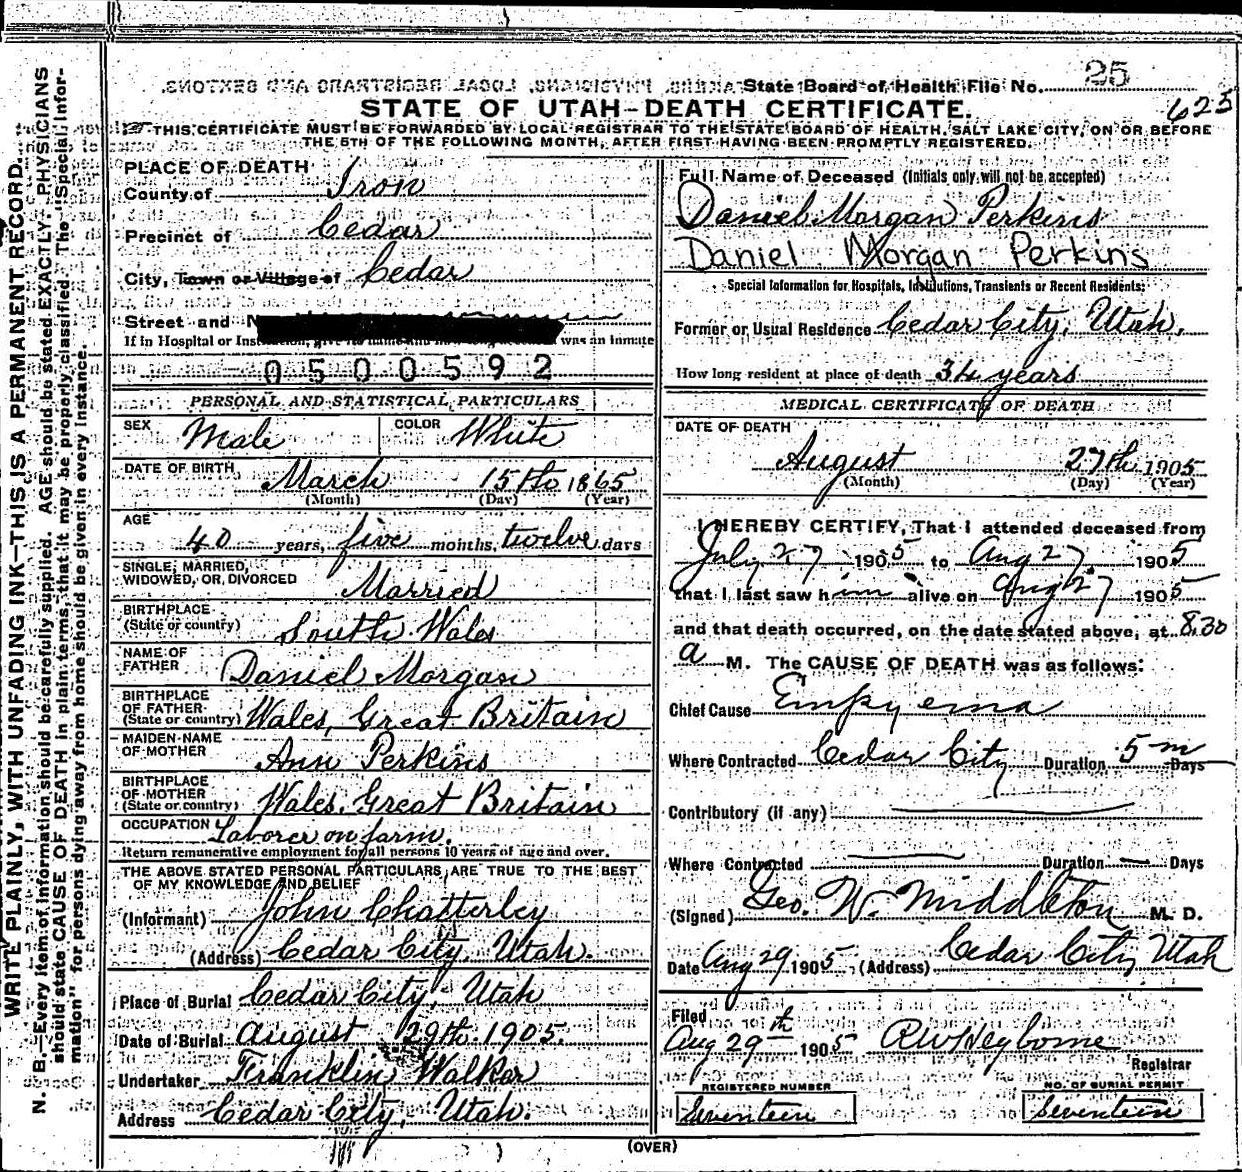 State Board of Health File No. 25
625
STATE OF UTAH-DEATH CERTIFICATE.
THIS CERTIFICATE MUST BE FORWARDED BY LOCAL REGISTRAR TO THE STATE BOARD OF HEALTH, SALT LAKE CITY, ON OR BEFORE
THE 5TH OF THE FOLLOWING MONTH, AFTER FIRST HAVING BEEN PROMPTLY REGISTERED.
WRITE PLAINLY, WITH UNFADING INK—THIS IS A PERMANENT RECORD.
N. B.—Every item of information should be carefully supplied. AGE should be stated EXACTLY. PHYSICIANS
should state CAUSE OF DEATH in plain terms, that it may be properly classified. The "Special Infor-
mation" for persons dying away from home should be given in every instance.
PLACE OF DEATH
County of Iron
Precinct of Cedar
City, Town or Village of Cedar
Street and
If in Hospital or was an inmate
0500592
PERSONAL AND STATISTICAL PARTICULARS
SEX Male COLOR White
DATE OF BIRTH March 15th 1865
(Month) (Day) (Year)
AGE 40 years, five months, twelve days
SINGLE, MARRIED,
WIDOWED, OR DIVORCED Married
BIRTHPLACE
(State or country) South Wales
NAME OF
FATHER Daniel Morgan
BIRTHPLACE
OF FATHER
(State or country) Wales, Great Britain
MAIDEN NAME
OF MOTHER Ann Perkins
BIRTHPLACE
OF MOTHER
(State or country) Wales. Great Britain
OCCUPATION Laborer on farm.
Return remunerative employment for all persons 10 years of age and over.
THE ABOVE STATED PERSONAL PARTICULARS ARE TRUE TO THE BEST
OF MY KNOWLEDGE AND BELIEF
(Informant) John Chatterley
(Address) Cedar City, Utah.
Place of Burial Cedar City, Utah
Date of Burial August 29th 1905.
Undertaker Franklin Walker
Address Cedar City, Utah.
Full Name of Deceased (Initials only will not be accepted)
Daniel Morgan Perkins
Daniel Morgan Perkins
Special Information for Hospitals, Institutions, Transients or Recent Residents:
Former or Usual Residence Cedar City, Utah.
How long resident at place of death 34 years
MEDICAL CERTIFICATE OF DEATH
DATE OF DEATH
August 27th 1905
(Month) (Day) (Year)
I HEREBY CERTIFY, That I attended deceased from
July 27 1905 to Aug 27 1905
that I last saw him alive on Aug 27 1905
and that death occurred, on the date stated above, at 8.30
a M. The CAUSE OF DEATH was as follows:
Chief Cause Empyema
Where Contracted Cedar City Duration 5 m Days
Contributory (if any)
Where Contracted Duration — Days
(Signed) Geo. W. Middleton M. D.
Date Aug 29 1905 (Address) Cedar City Utah
Filed
Aug 29th 1905 RW Heyborne
Registrar
REGISTERED NUMBER
Seventeen
NO. OF BURIAL PERMIT
Seventeen
(OVER)